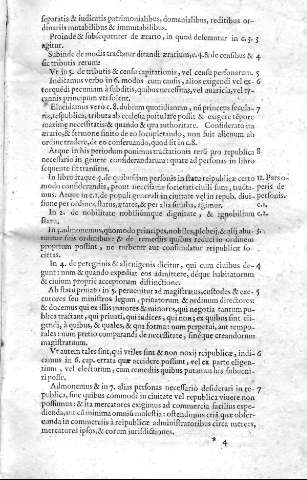 separatis & iudicatis patrimonialibus, domanialibus, reditibus ordinariis
Proinde & subsequenter de ærario, in quod deferuntur in c.3. 3
agitur.
Subinde de modis tractatur ditandi ærarium c.4. & de censibus & 4
sic tributis rerum:
Vt in 5. de tributis & censu capitationis, vel censu personarum. 5
Animus verbo in 6. modos cum causis, alios exigendi vel 6
torquédi pecuniam à subditis, quibus necessitas, vel auaricia, vel tyrannis
principum vti solent.
ris, respublica, tributa ab ecclesia postulare possit & exigere tépore
maximę necessitatis: & quando & qua authoritate. Considerato in
ærario, & sermone finito de eo locupletando, non fuit alienum ab
ordine tradere, de eo conseruando, quod fit in c.8.
Atque in his periodum ponimus tractationis rerū pro republica 8
necessario in genere considerandarum: quare ad personas in libro
sequente fit transitus.
In libro itaque 4. de quibusdam personis in statu reipublicæ certo
modo considerandis, prout necessariæ societati ciuili sunt,
Atque in c.1. de populi generali in ciuitate vel in repub. diuisione
per ordines, status, gradus, & per alia similia, agimus.
In 2. de nobilitate nobiliúmque dignitate, & ignobilium 2.
statu.
In 3. admonemus, quomodo principes, nobiles, plebeij, & alij 3
suis ordinibus: & de remediis quibus
proprium possunt, ne turbetur aut confundatur reipublicæ societas.
In 4. de peregrinis & alienigenis dicitur, qui cum ciuibus degunt: 4
num & quando expediat eos admittere, deque habitatorum
& ciuium propriè acceptorum distinctione.
Ab statu priuato in 5. peruenitur ad magistratus, custodes & executores 5
seu ministros legum, priuatorum & ordinum directores:
& docemus qui ex illis maiores & minores, qui negotia tantum publica
tractant, qui priuati, qui iudices, qui non; ex quibus sint eligendi,
à quibus, & quales, & qua forma: num perpetui, aut temporales:
num pretio comparandi de necessitate, sintque creandorum
magistratuum.
Vt autem tales sint, qui vtiles sint & non noxij reipublicæ, indicamus 6
in 6. cap. errata quæ accidere possunt, vel ex parte eligentium
, vel electorum, cum remediis quibus putamus his subueniri
posse.
Admonemus & in 7. alias personas necessariò desiderari in republica, 7
sine quibus commodè in ciuitate vel republica viuere non
possumus: & ita mercatores exigimus ad commercia facilius expedienda,
aut cū minima omniū molestia: ostendimus etiā quæ obseruanda
in commerciis à reipublicæ administratoribus circa merces,
mercatores ipsos, & eorum iurisdictiones.
* 4